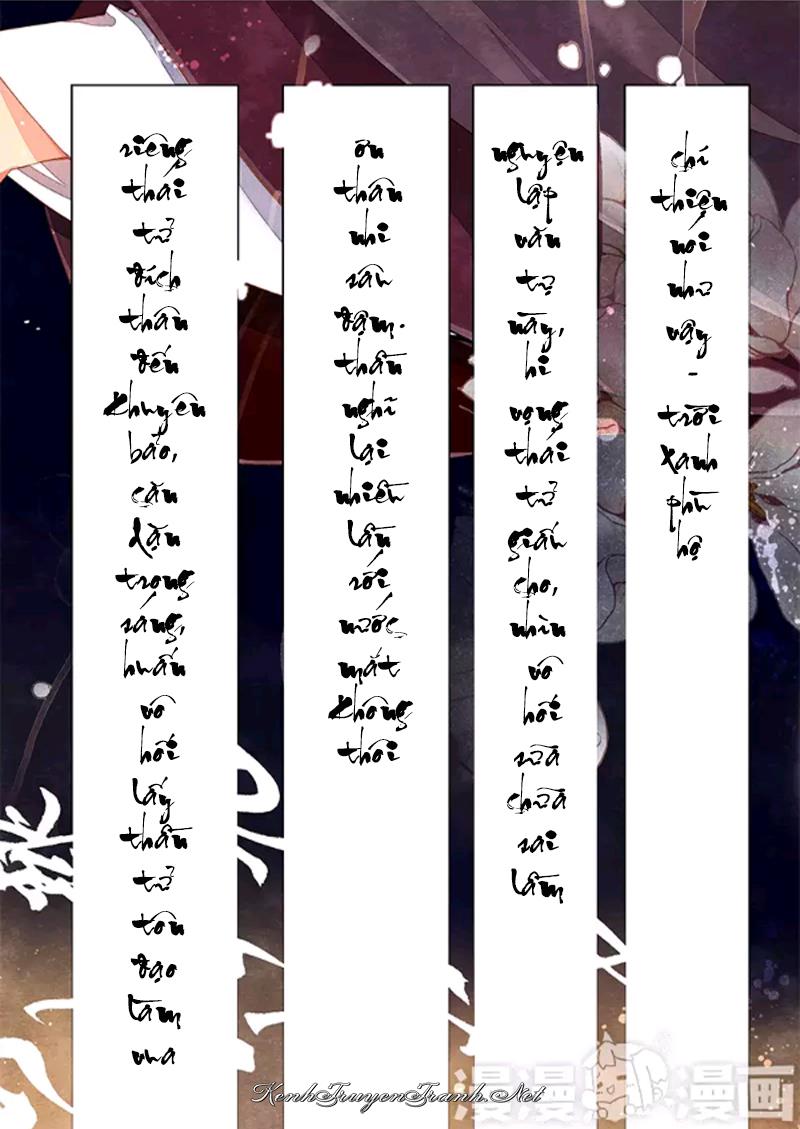 riêng thái tử đích thân đến khuyên bảo, căn dặn trong sáng, huấn vô hối lấy thần tử tôn đạo làm vua
ơn thân nhi sân đậm. thần nghĩ lại nhiều lần rồi nước mắt không thôi
nguyện lập văn tự này, hi vọng thái tử giấu cho, nhìn vô hối sửa chữa sai lầm
chí thiện nói như vậy - trời xanh phù hộ
KenhTruyenTranh.Net
漫漫漫画